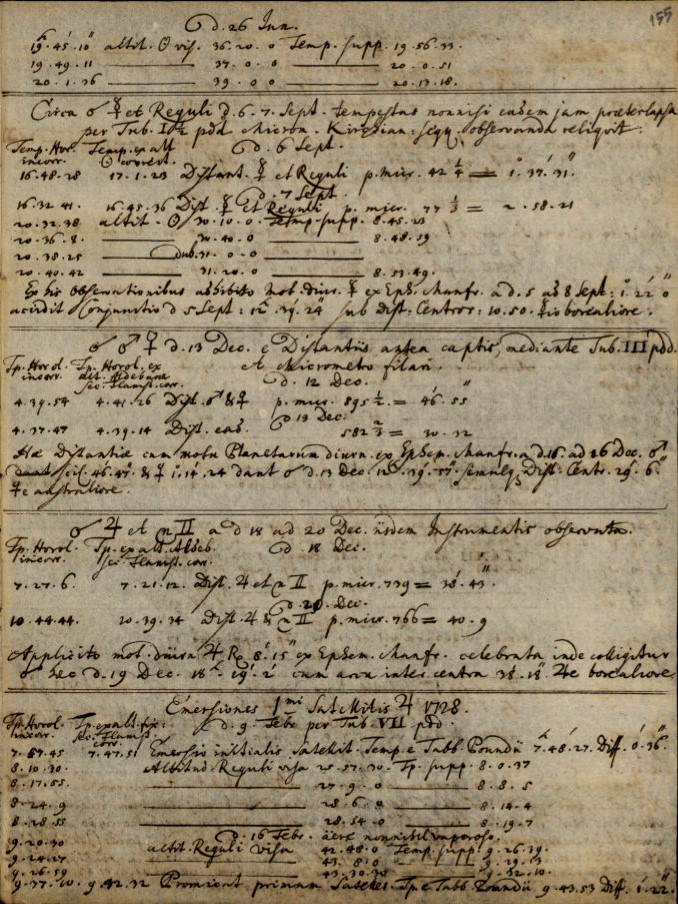 155
d. 26 Jun.
19. 45. 10 altit. ☉ vis. 36. 20. 0 Temp. supp. 19. 56. 33.
19. 49. 11 37. 0. 0 20. 0. 51
20. 1. 36 39. 0. 0 20. 13. 18.
Circa ☌ ☿ et Reguli d. 6. 7. Sept. tempestas nonnisi eadem jam præterlapsa
per Tub. pdd. Microm. Kirchian. seqq. observanda reliquit.
Temp. Hor. Temp. ex alt. d. 6 Sept.
incorr. ☉ correct.
16. 48. 28 17. 1. 23 Distant. ☿ et Reguli p. micr. 42 1/4 = 1. 37. 31.
d. 7 Sept.
16. 32. 41. 16. 45. 36 Dist. ☿ et Reguli p. micr. 77 1/3 = 2. 58. 21
20. 32. 38 altit. ☉ 30. 10. 0 Temp. supp. 8. 45. 23
20. 36. 8. 30. 40. 0 8. 48. 59
20. 38. 25 dub. 31. 0. 0
20. 40. 42 31. 20. 0 8. 53. 49.
Ex his observationibus adhibito mot. diur. ☿ ex Eph. Manfr. a d. 5 ad 8 Sept: 1. 22. 0
accidit Conjunctio d 5 Sept: 12. 39. 24 sub dist. Centror: 10. 50. ☿io boreliore.
☌ ♂ ♀ d. 13 Dec. e Distantiis antea captis, mediante Tub. III pdd.
Tp. Horol. Tp. Horol. ex et Micrometro filari.
incorr. Aldebaran d. 12 Dec.
sec. Flamst. corr.
4. 39. 54 4. 41. 26 Dist. ♂ & ♀ p. micr. 895 1/2 = 46. 55
d 13 Dec.
4. 37. 47 4. 39. 14 Dist. ead. 582 2/3 = 30. 32
Hæ Distantiæ cum motu Planetarum diurn. ex Ephem. Manfr. a d. 16. ad 26 Dec. ♂
scil. 46. 47. & ♀ 1. 14. 24 dant ☌ d. 13 Dec. 12. 39. 57 Dist. Centr. 29. 6.
♀e australiore.
☌ ♃ et n II a d 18 ad 20 Dec. iisdem Instrumentis observata.
Tp. Horol. Tp. ex alt. Aldeb. d 18 Dec.
incorr. sec. Flamst. corr.
7. 27. 6. 7. 21. 12. Dist. ♃ et n II p. micr. 739 = 38. 43
d. 20. Dec.
10. 44. 44. 10. 39. 34 Dist. ♃ & n II p. micr. 766 = 40. 9
Applicito mot. diurn ♃ R. 8. 15 ex Ephem. Manfr. celebrata inde colligitur
☌ hæc d. 19 Dec. 18. 19. 2 cum arcu inter centra 38. 18. ♃e borealiore.
Emersiones 1mi Satellitis ♃ 1728.
Tp. Horol. Tp. ex alt. fix. d. 9. Febr per Tub. VII pdd.
incorr. sec. Flamst. corr.
7. 57. 45 7. 47. 51 Emersio initialis Satellit. Temp. e Tabb Poundii 7. 48. 27. Diff. 0. 36.
8. 10. 30. Altitud Reguli visa 25. 57. 30. Tp. supp. 8. 0. 37
8. 17. 55. 27. 9. 0 8. 8. 5
8. 24. 9 28. 6. 0 8. 14. 4
8. 28. 55 28. 54. 0 8. 19. 7
d. 16 Febr. aëre nonnihil vaporoso.
9. 20. 30 altit. Reguli visa 42. 48. 0 Temp. supp. 9. 26. 39.
9. 24. 27 43. 8. 0 9. 29. 13
9. 26. 59 43. 30. 30 9. 32. 10.
9. 37. 10. 9. 42. 32 Promicat primum Satelles. Tp e Tabb Poundii 9. 43. 53 Diff. 1. 22.